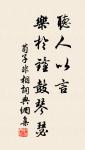 聽人以言
樂於鐘鼓琴瑟
荀子非相詞典網集